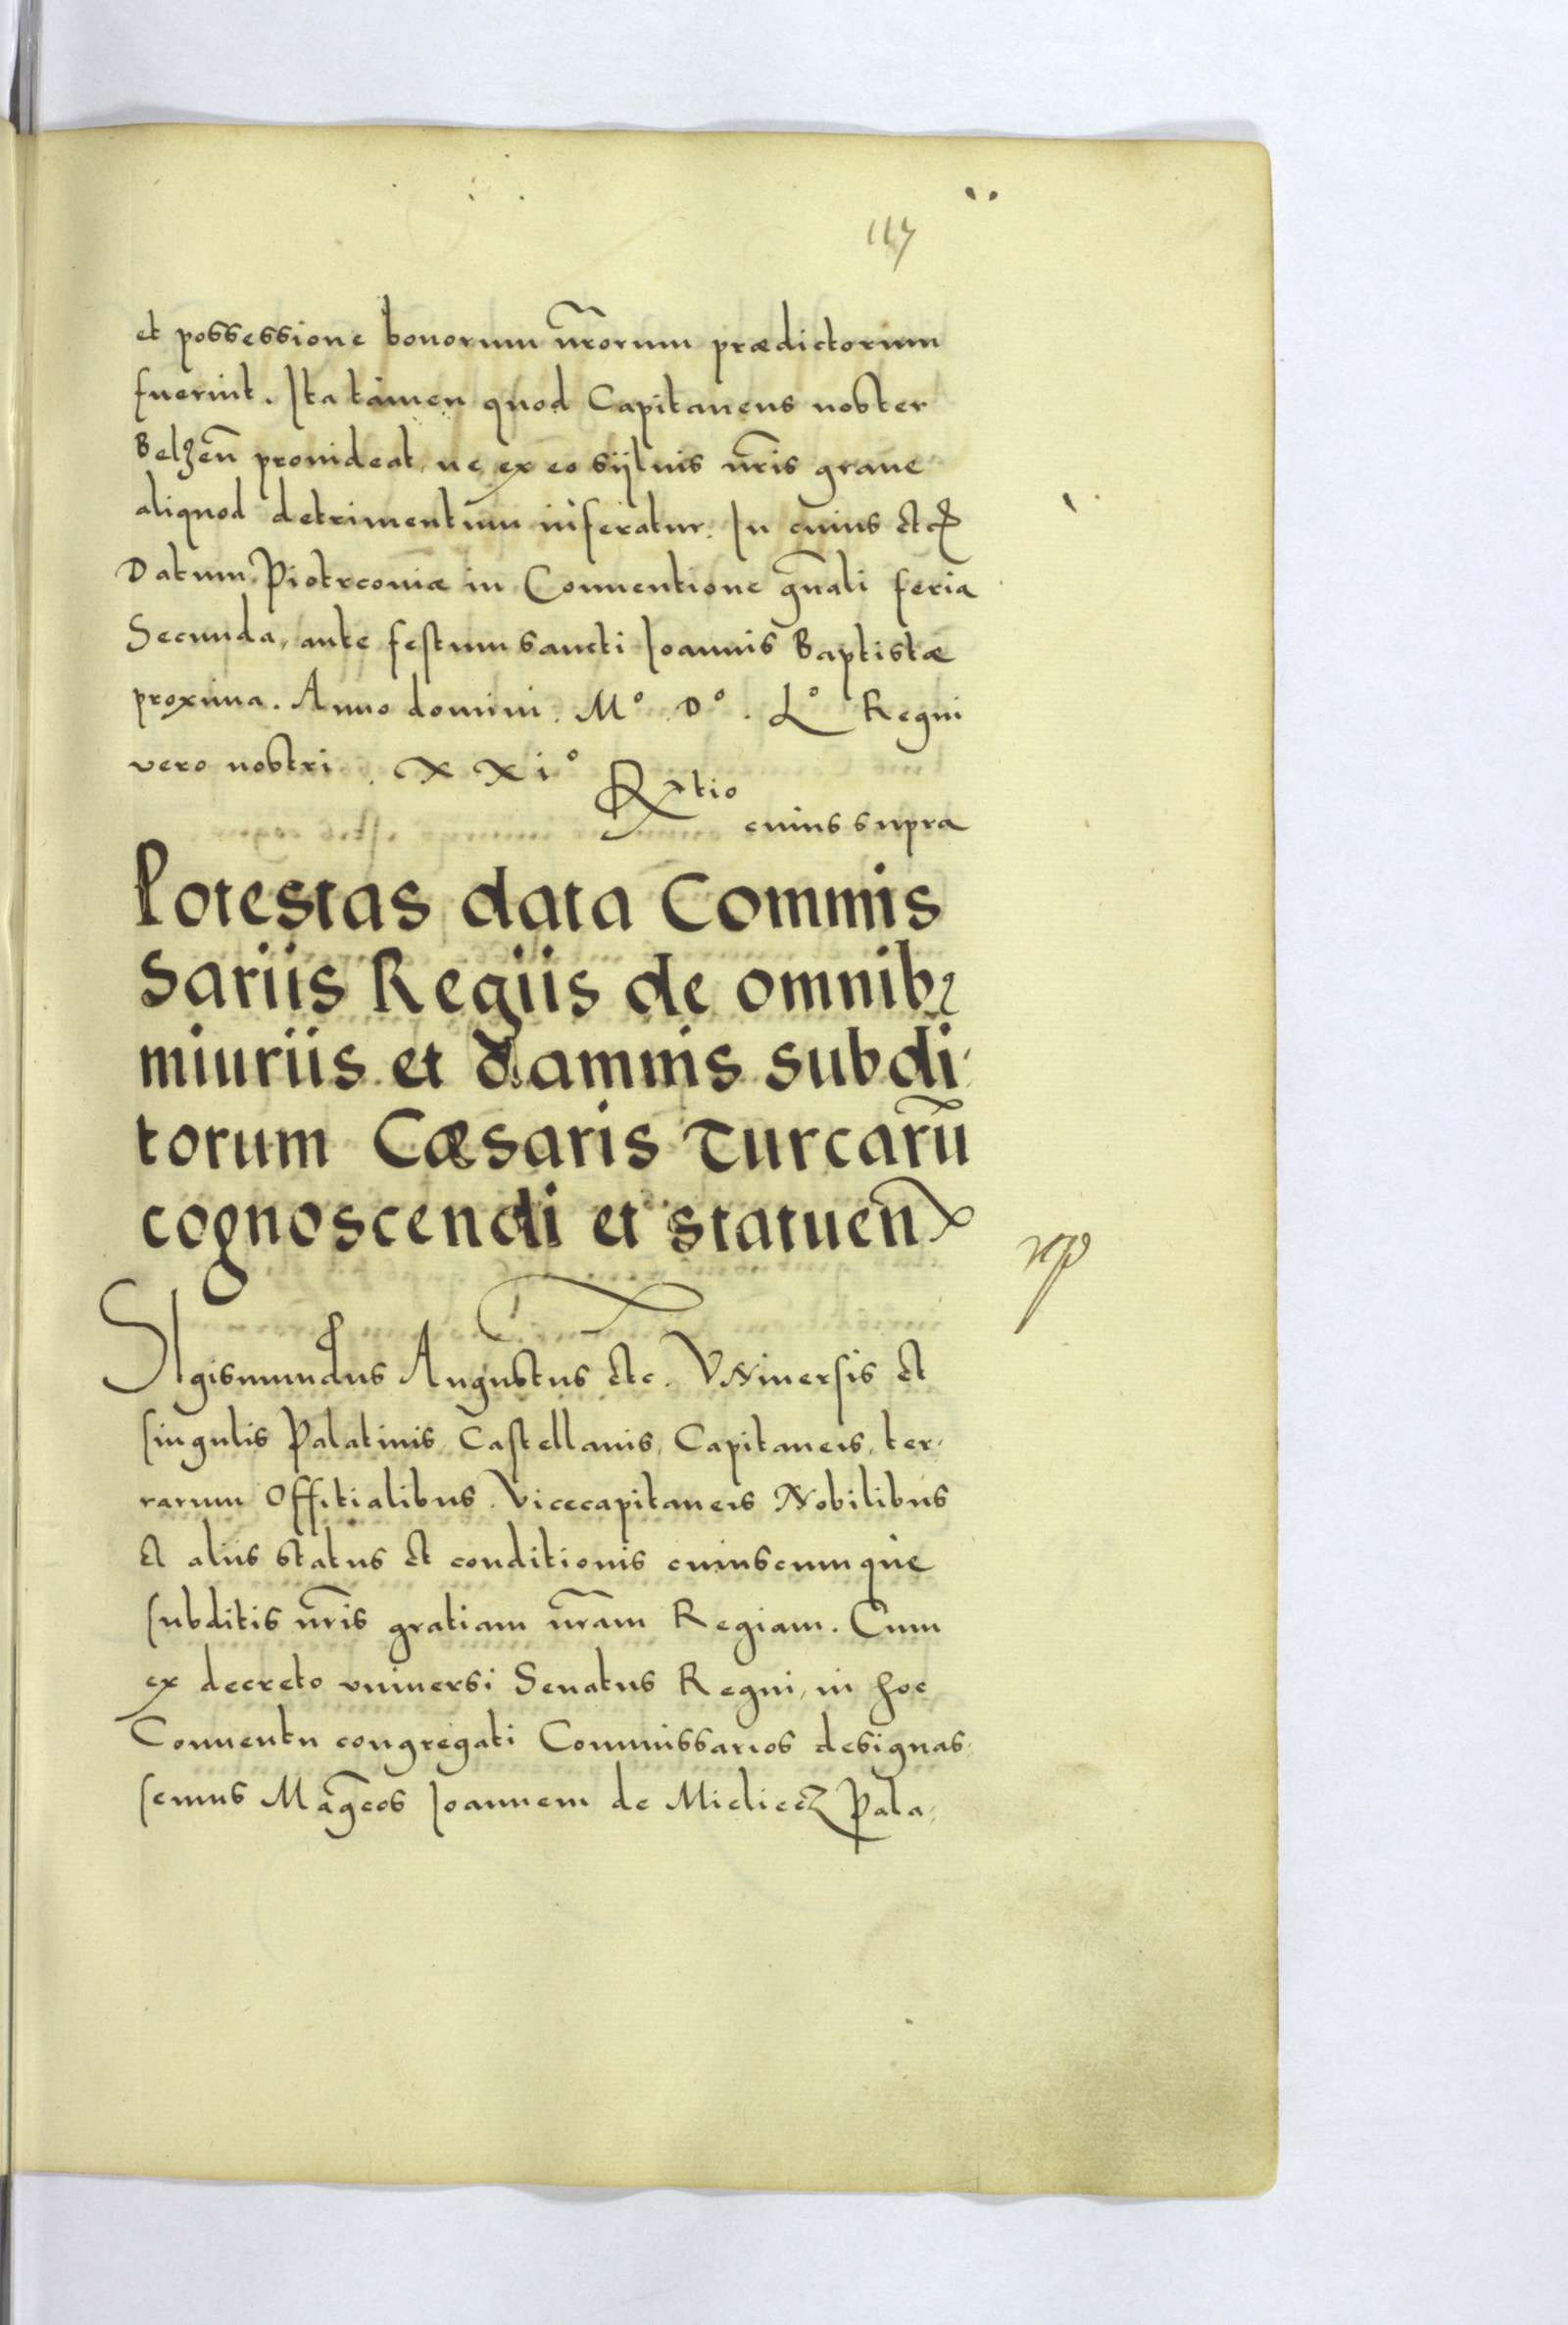 117
et possessione bonorum nr̃orum prædictorum
fuerint. Ita tamen quod Capitaneus noster
Belzen̄ prouideat, ne ex eo sÿluis nr̃is graue
aliquod detrimentum inferatur. In cuius etc
Datum Piotrcouiæ in Conuentione gn̄ali feria
Secunda, ante festum sancti Ioannis Baptistæ
proxima. Anno domini. M° D°. L° Regni
vero nostri. XXi°
Rtio
cuius supra
Potestas data Commis
sariis Regiis de omnibꝫ
iniuriis et damnis subdi
torum Cæsaris Turcarū
cognoscendi et statuen̄
SIgismundus Augustus etc. VNiuersis et
singulis Palatinis, Castellanis, Capitaneis, ter
rarum Offitialibus. Vicecapitaneis Nobilibus
et aliis status et conditionis cuiuscumque
subditis nr̃is gratiam nr̃am Regiam. Cum
ex decreto vniuersi Senatus Regni, in hoc
Conuentu congregati Commissarios designas
semus Mag̃cos Ioannem de Mieliecz Pala